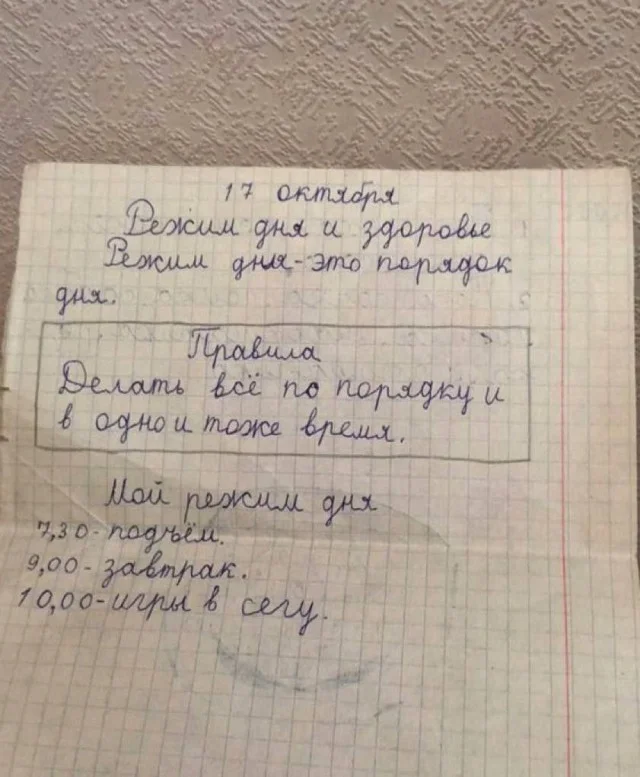 17 октября
Режим дня и здоровье
Режим дня - это порядок
дня.
Правила
Делать всё по порядку и
в одно и тоже время.
Мой режим дня
7,30 - подъём.
9,00 - завтрак.
10,00 - игры в сегу.